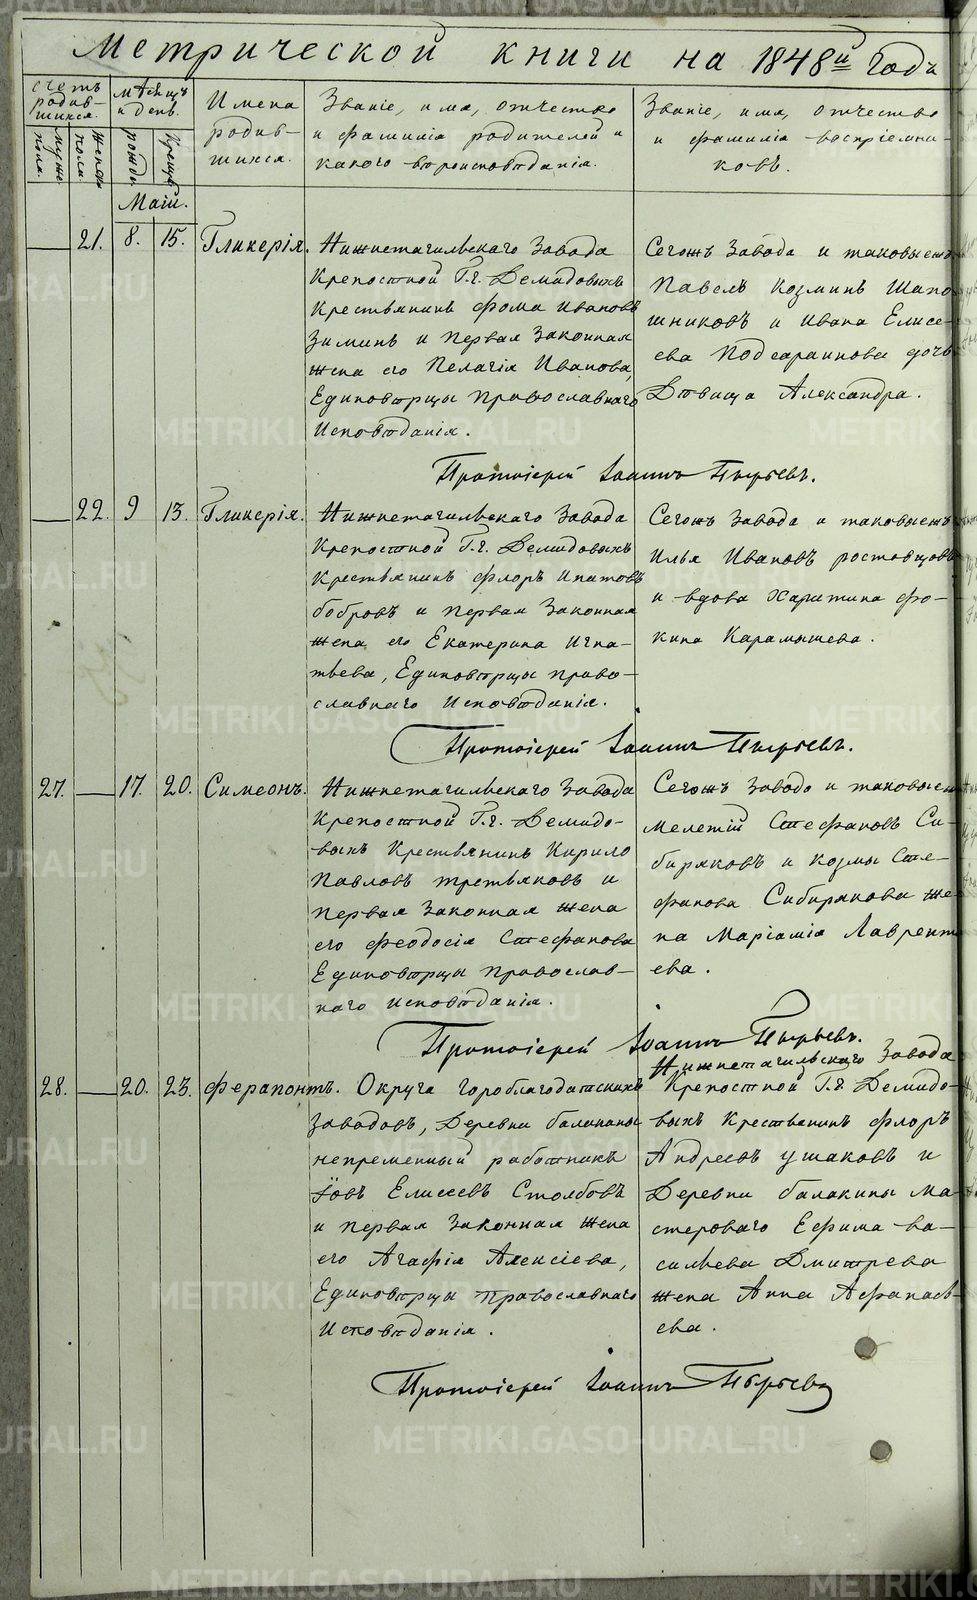 Метрической книги на 1848й годъ
Счетъ родив-шихся.
Мѣсяцъ и день.
Имена родив-шихся.
Званіе, имя, отчество
и фамилія родителей и
какого вѣроисповѣданія.
Званіе, имя, отчество
и фамилія воспріемни-
ковъ.
мужс пола.
женс пола.
рожд.
Крещ.
Маій.
21. 8. 15. Гликерія.
Нижнетагильскаго Завода
Крепостной Г.г. Демидовыхъ
Крестьянинъ фома Ивановъ
Зиминъ и первая Законная
жена его Пелагія Иванова,
Единовѣрцы Православнаго
Исповѣданія.
Сегожъ Завода и таковыежъ
Павелъ Козминъ Шапо
шниковъ и Ивана Елисе-
ева Подсараинова дочь
Дѣвица Александра.
Протоіерей Іоаннъ Пырьевъ.
22. 9 13. Гликерія.
Нижнетагильскаго Завода
Крепостной Г.г. Демидовыхъ
Крестьянинъ флоръ Ипатовъ
бобровъ и первая Законная
жена его Екатерина Игна-
тьева, Единовѣрцы право-
славнаго Исповѣданія.
Сегожъ Завода и таковыежъ
Илья Ивановъ ростовщовъ
и вдова Харитина фо-
кина Карамышева.
Протоіерей Іоаннъ Пырьевъ.
27. 17. 20. Симеонъ.
Нижнетагильскаго Завода
Крепостной Г.г. Демидо-
выхъ Крестьянинъ Кирило
Павловъ третьяковъ и
первая Законная жена
его феодосія Стефанова
Единовѣрцы православ-
наго исповѣданія.
Сегожъ Завода и таковыеж
Мелетій Стефановъ Си-
биряковъ и Козмы Сте-
фанова Сибирякова же-
на Маріамія Лаврент
ева.
Протоіерей Іоаннъ Пырьевъ.
28. 20. 23. ферапонтъ.
Округа Гороблагодатскихъ
Заводовъ, Деревни балакины
непременный работникъ
Іовъ Елисеевъ Столбовъ
и первая Законная жена
его Агафія Алексіева,
Единовѣрцы Православнаго
Исповѣданія.
Нижнетагильскаго Завода
Крепостной Г.г. Демидо-
выхъ Крестьянинъ флоръ
Андреевъ ушаковъ и
Деревни балакины Ма-
стероваго Ефима Ва-
сильева Дмитрева
жена Анна Афанась-
ева.
Протоіерей Іоаннъ Пырьевъ